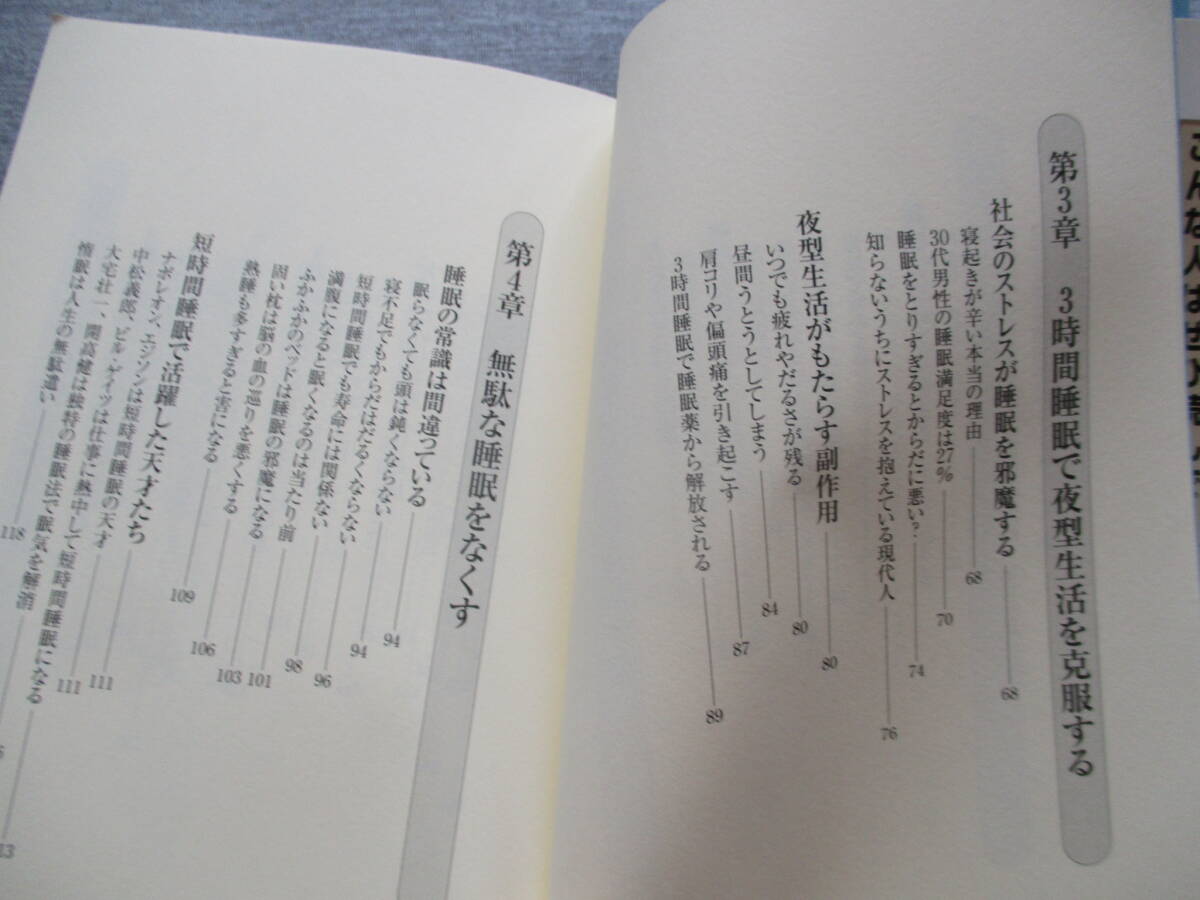 第3章 3時間睡眠で夜型生活を克服する
社会のストレスが睡眠を邪魔する 68
寝起きが辛い本当の理由 68
30代男性の睡眠満足度は27% 70
睡眠をとりすぎるとからだに悪い? 74
知らないうちにストレスを抱えている現代人 76
夜型生活がもたらす副作用 80
いつでも疲れやだるさが残る 80
昼間うとうとしてしまう 84
肩コリや偏頭痛を引き起こす 87
3時間睡眠で睡眠薬から解放される 89
第4章 無駄な睡眠をなくす
睡眠の常識は間違っている 94
眠らなくても頭は鈍くならない 94
寝不足でもからだはだるくならない 96
短時間睡眠でも寿命には関係ない 98
満腹になると眠くなるのは当たり前 101
ふかふかのベッドは睡眠の邪魔になる 103
固い枕は脳の血の巡りを悪くする 106
熟睡も多すぎると害になる 109
短時間睡眠で活躍した天才たち 111
ナポレオン、エジソンは短時間睡眠の天才 111
中松義郎、ビル・ゲイツは仕事に熱中して短時間睡眠になる
大宅壮一、開高健は独特の睡眠法で眠気を解消
惰眠は人生の無駄遣い 118